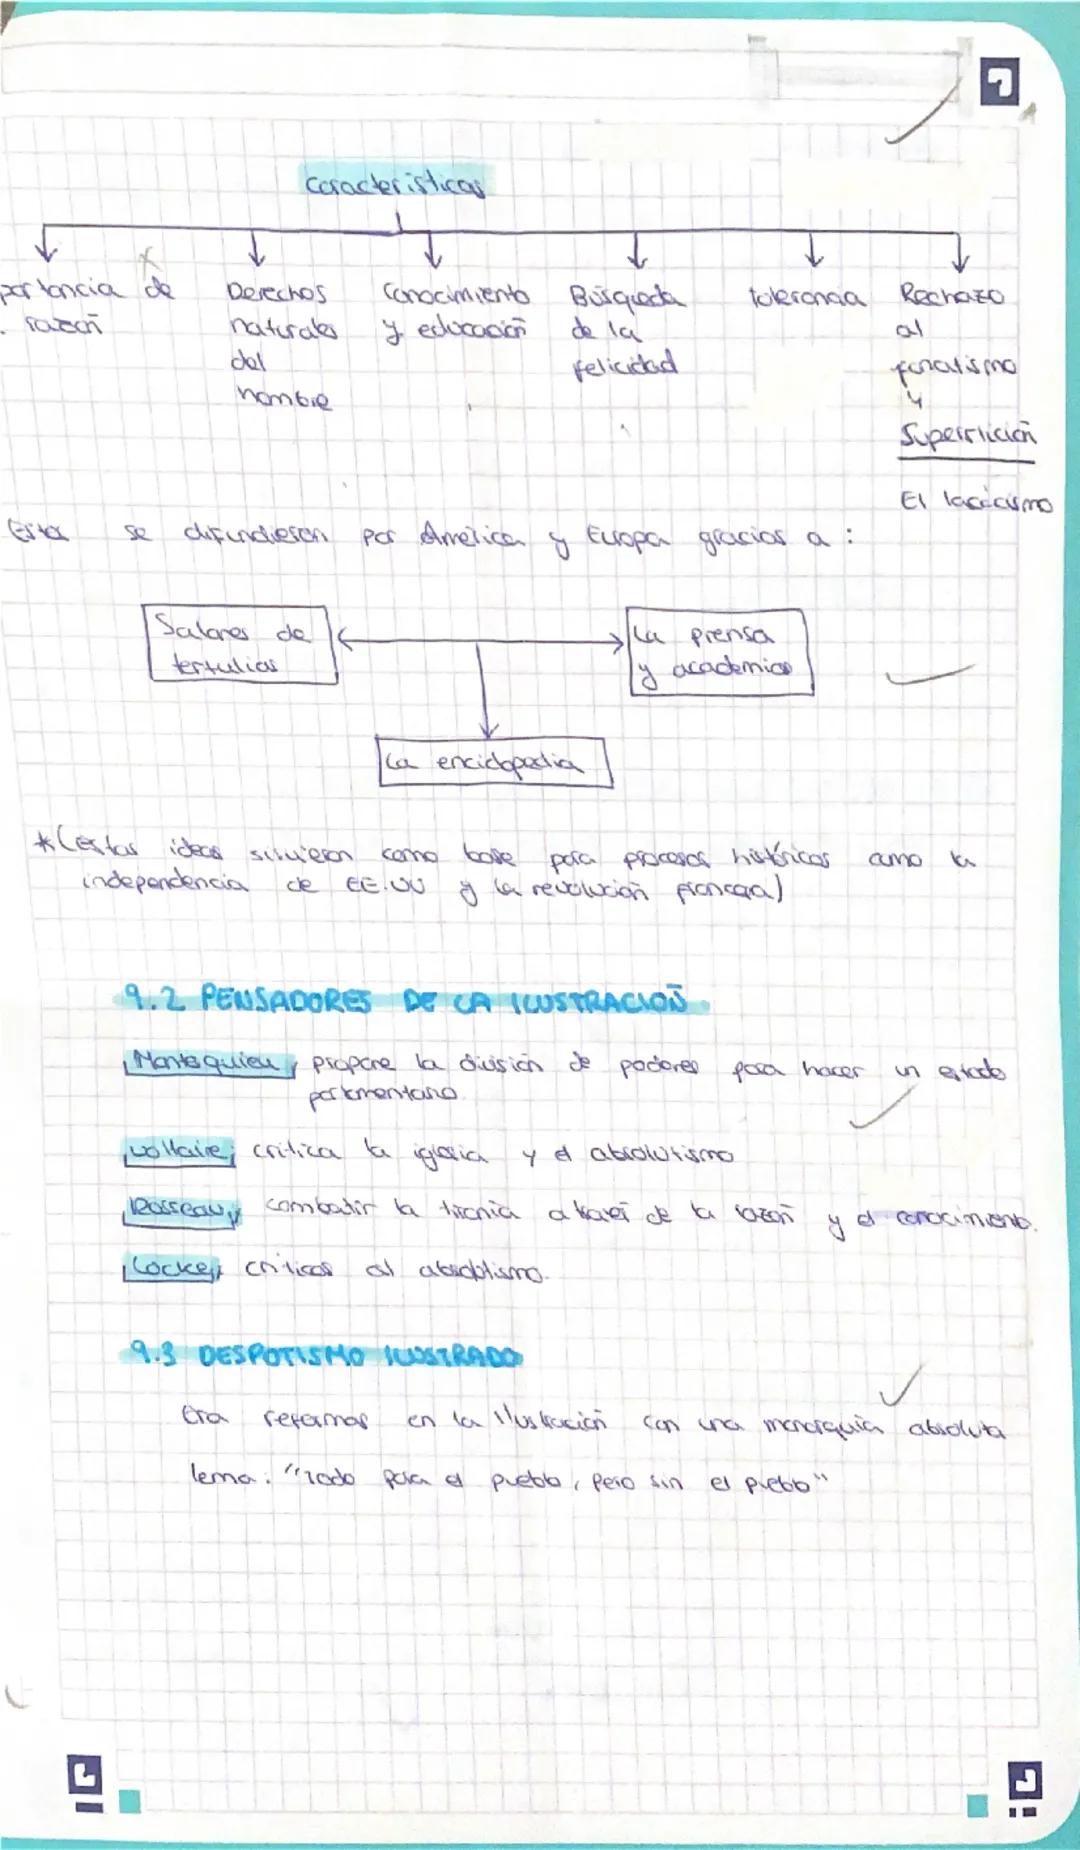 Caracteristicas
portancia de
razoñ
Derechos
naturales
del
hombre
Conocimiento
y educacioñ
Búsqueda
de la
felicidad
tolerancia
Rechazo
al
fanatismo
y
Supersticioñ
El
Esta se difundieson por América y Europa gracias a :
Salones de
tertulias
La prensa
y academias
La enciclopedia
*(estas ideas sirvieron como base para procesos históricos como la
independencia de EE.UU y la revolucioñ francesa)
9.2 PENSADORES DE LA ILUSTRACIOÑ
Montesquieu, propone la división de poderes para hacer un estado
parlamentario.
Voltaire; critica la iglesia y el absolutismo
Rosseau, combatir la tirania a través de la razoñ y el conocimiento.
Locke, criticas al absolutismo.
9.3 DESPOTISMO ILUSTRADO
Era reformas en la ilustración con una monarquía absoluta
lema: "Todo para el pueblo, pero sin el pueblo"